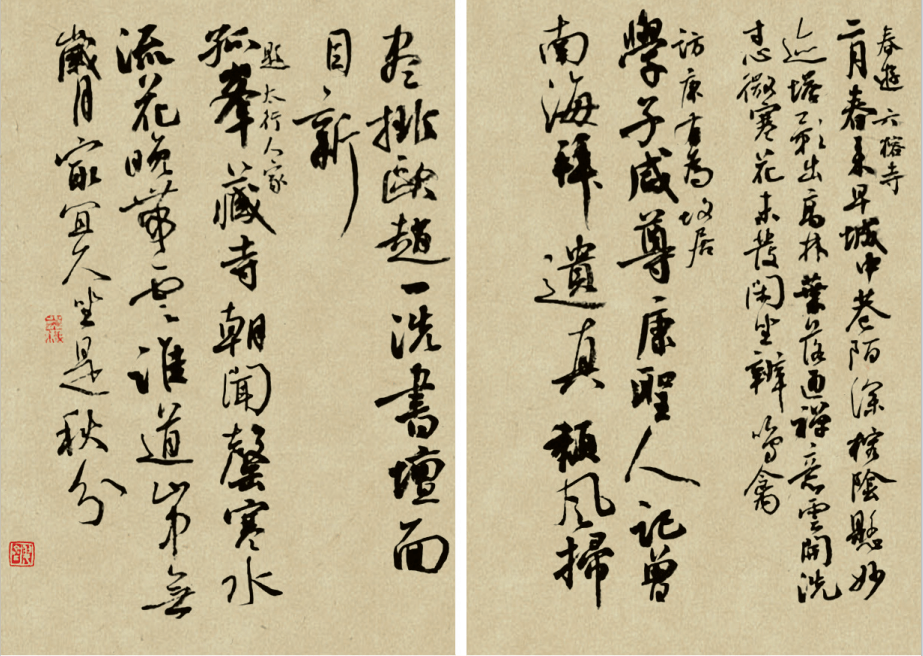 春遊六榕寺
二月春来早城中巷陌深榕陰懸妙
迹塔影出高林葉落通禅意雲開洗
心微寒花未發閑坐辨鳴禽
訪康有為故居
學子咸尊康聖人記曾
南海拜遺真頹風掃
盡推歐趙一洗書壇面
目新
題太行人家
孤峯藏寺朝聞磬寒水
流花晚帶雲誰道山中無
歲月冣宜人坐是秋分